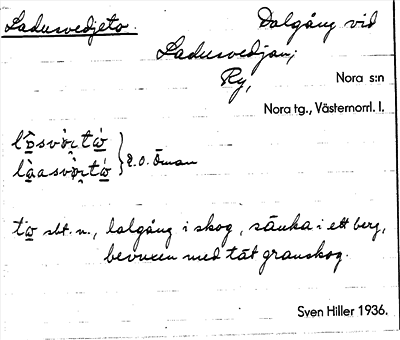 Ladusvedjeto. Dalgång vid
Ladusvedjan;
Ry,
Nora s:n
Nora tg., Västernorrl. l.
E.O. Öman
sbt. n., dalgång i skog, sänka i ett berg,
bevuxen med tät granskog.
Sven Hiller 1936.